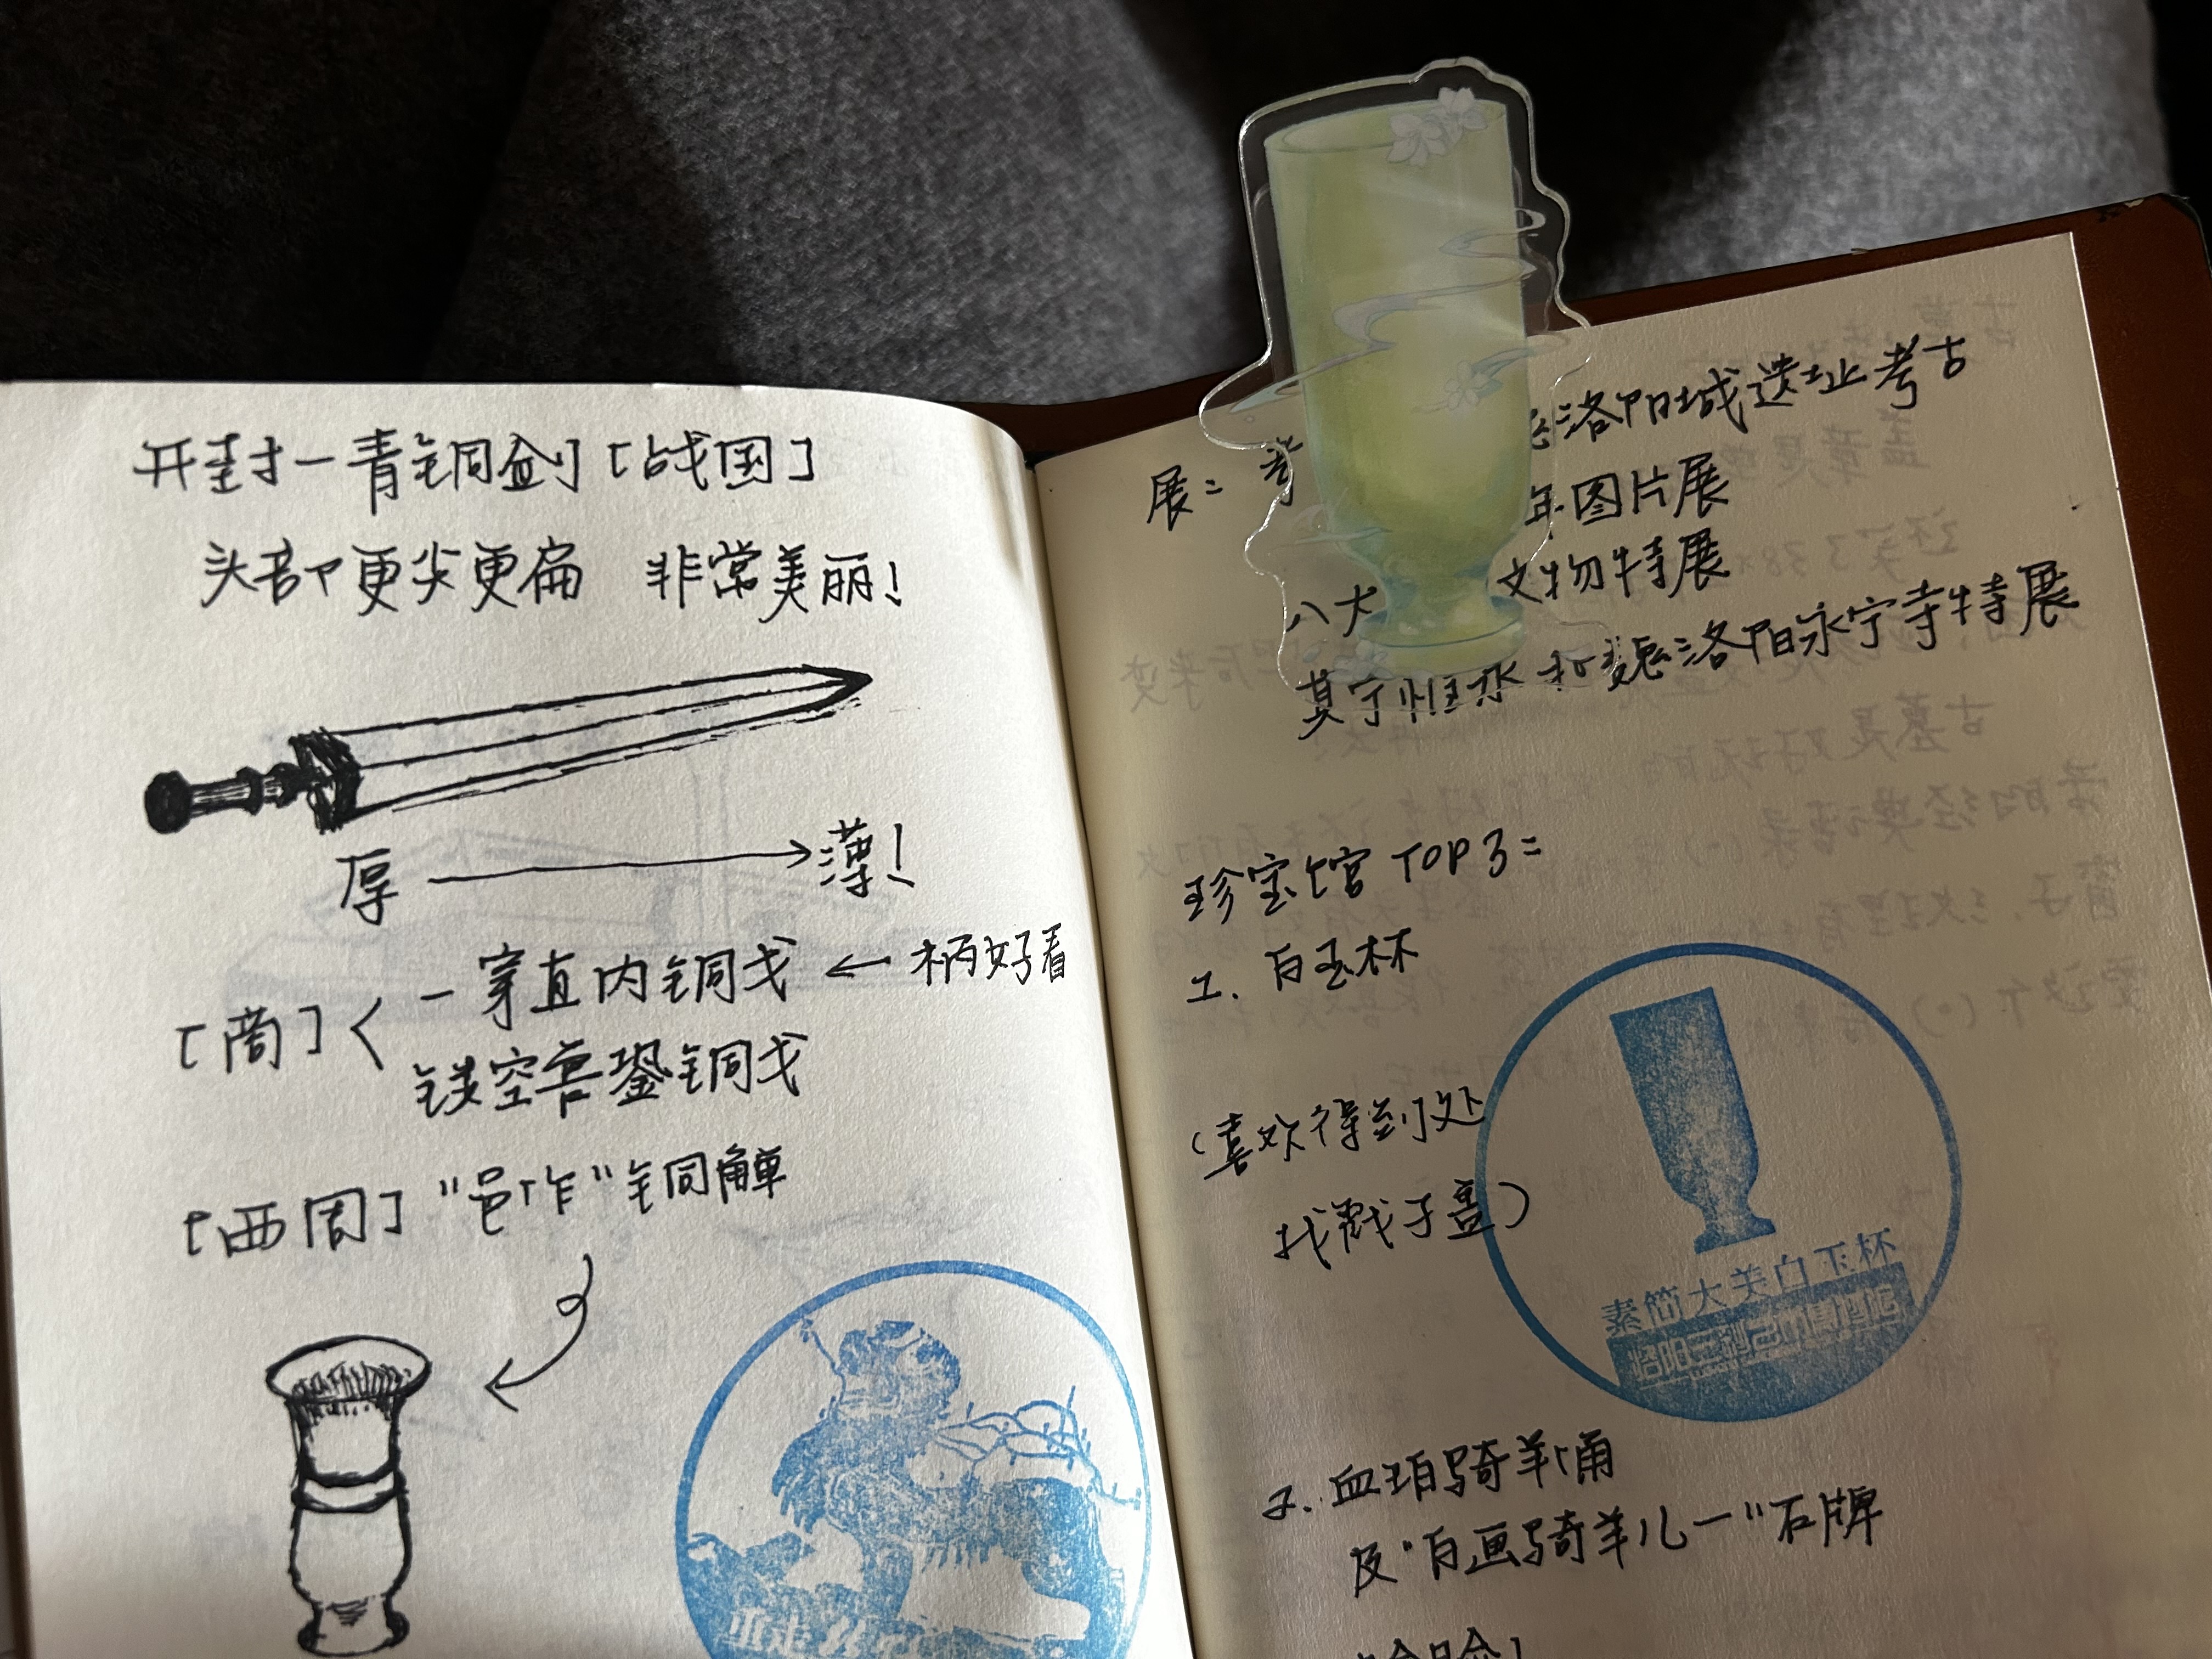 开封一青铜剑「战国」
头部更尖更扁 非常美丽!
厚 → 薄!
「商」< 一穿直内铜戈 ← 柄好看
镂空銎铜戈
「西周」"邑作"铜觯
重走丝
洛阳城遗址考古
展:
年图片展
八大 文物特展
莫宁恒永 北魏洛阳永宁寺特展
珍宝馆 TOP 3:
1. 白玉杯
(喜欢得到处
找戳子盖)
素简大美白玉杯
洛阳
2. 血珀骑羊俑
及"白画骑羊儿一"石牌